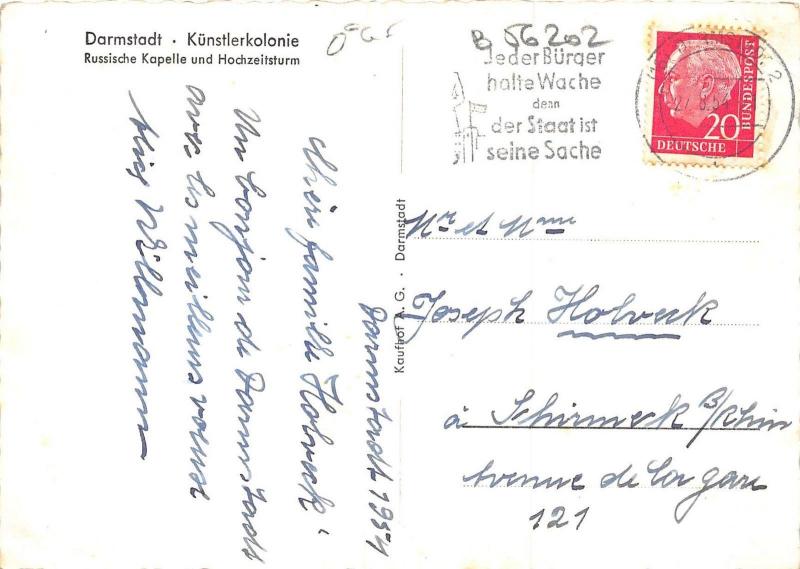 Darmstadt · Künstlerkolonie
Russische Kapelle und Hochzeitsturm
B 56202
Jeder Bürger
halte Wache
denn
der Staat ist
seine Sache
27.8.54
2
20
DEUTSCHE
BUNDESPOST
Kaufhof A.G. · Darmstadt
Darmstadt 1954
Chère famille Holveck
Un bonjour de Darmstadt
avec les meilleurs voeux
Willmann
Mr et Mme
Joseph Holveck
à Schirmeck B/Rhin
Avenue de la gare
121